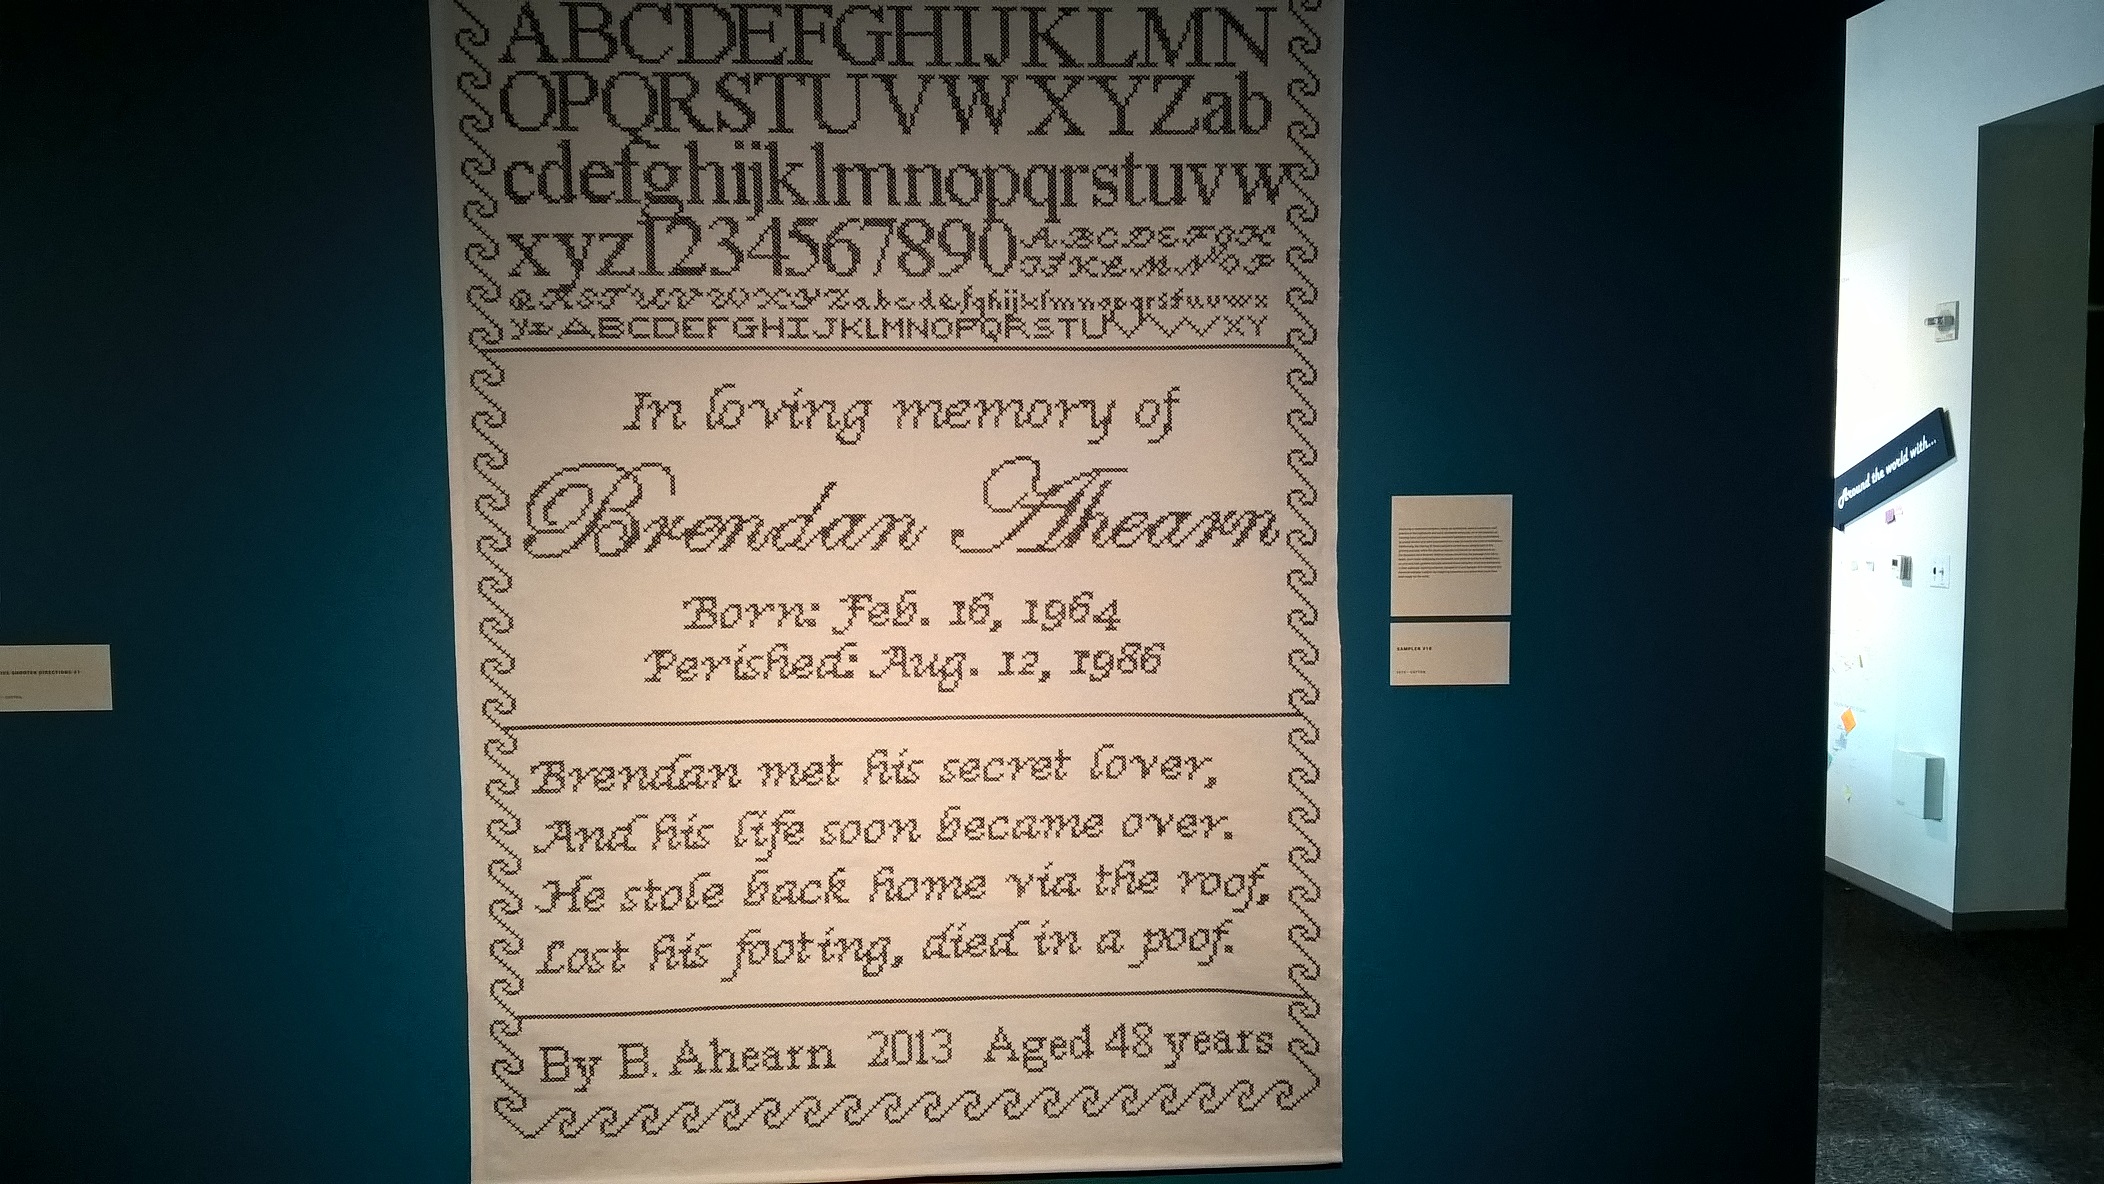 ABCDEFGHIJKLMN
OPQRSTUVWXYZab
cdefghijklmnopqrstuvw
xyz1234567890ABCDEFGH
IJKLMNOP
QRSTUVWXYZabcdefghijklmnopqrstuvwx
yzABCDEFGHIJKLMNOPQRSTUVWXY
In loving memory of
Brendan Ahearn
Born: Feb. 16, 1964
Perished: Aug. 12, 1986
Brendan met his secret lover,
And his life soon became over.
He stole back home via the roof,
Lost his footing, died in a poof.
By B. Ahearn 2013 Aged 48 years
SAMPLER #10
DIRECTIONS #1
Around the world with...